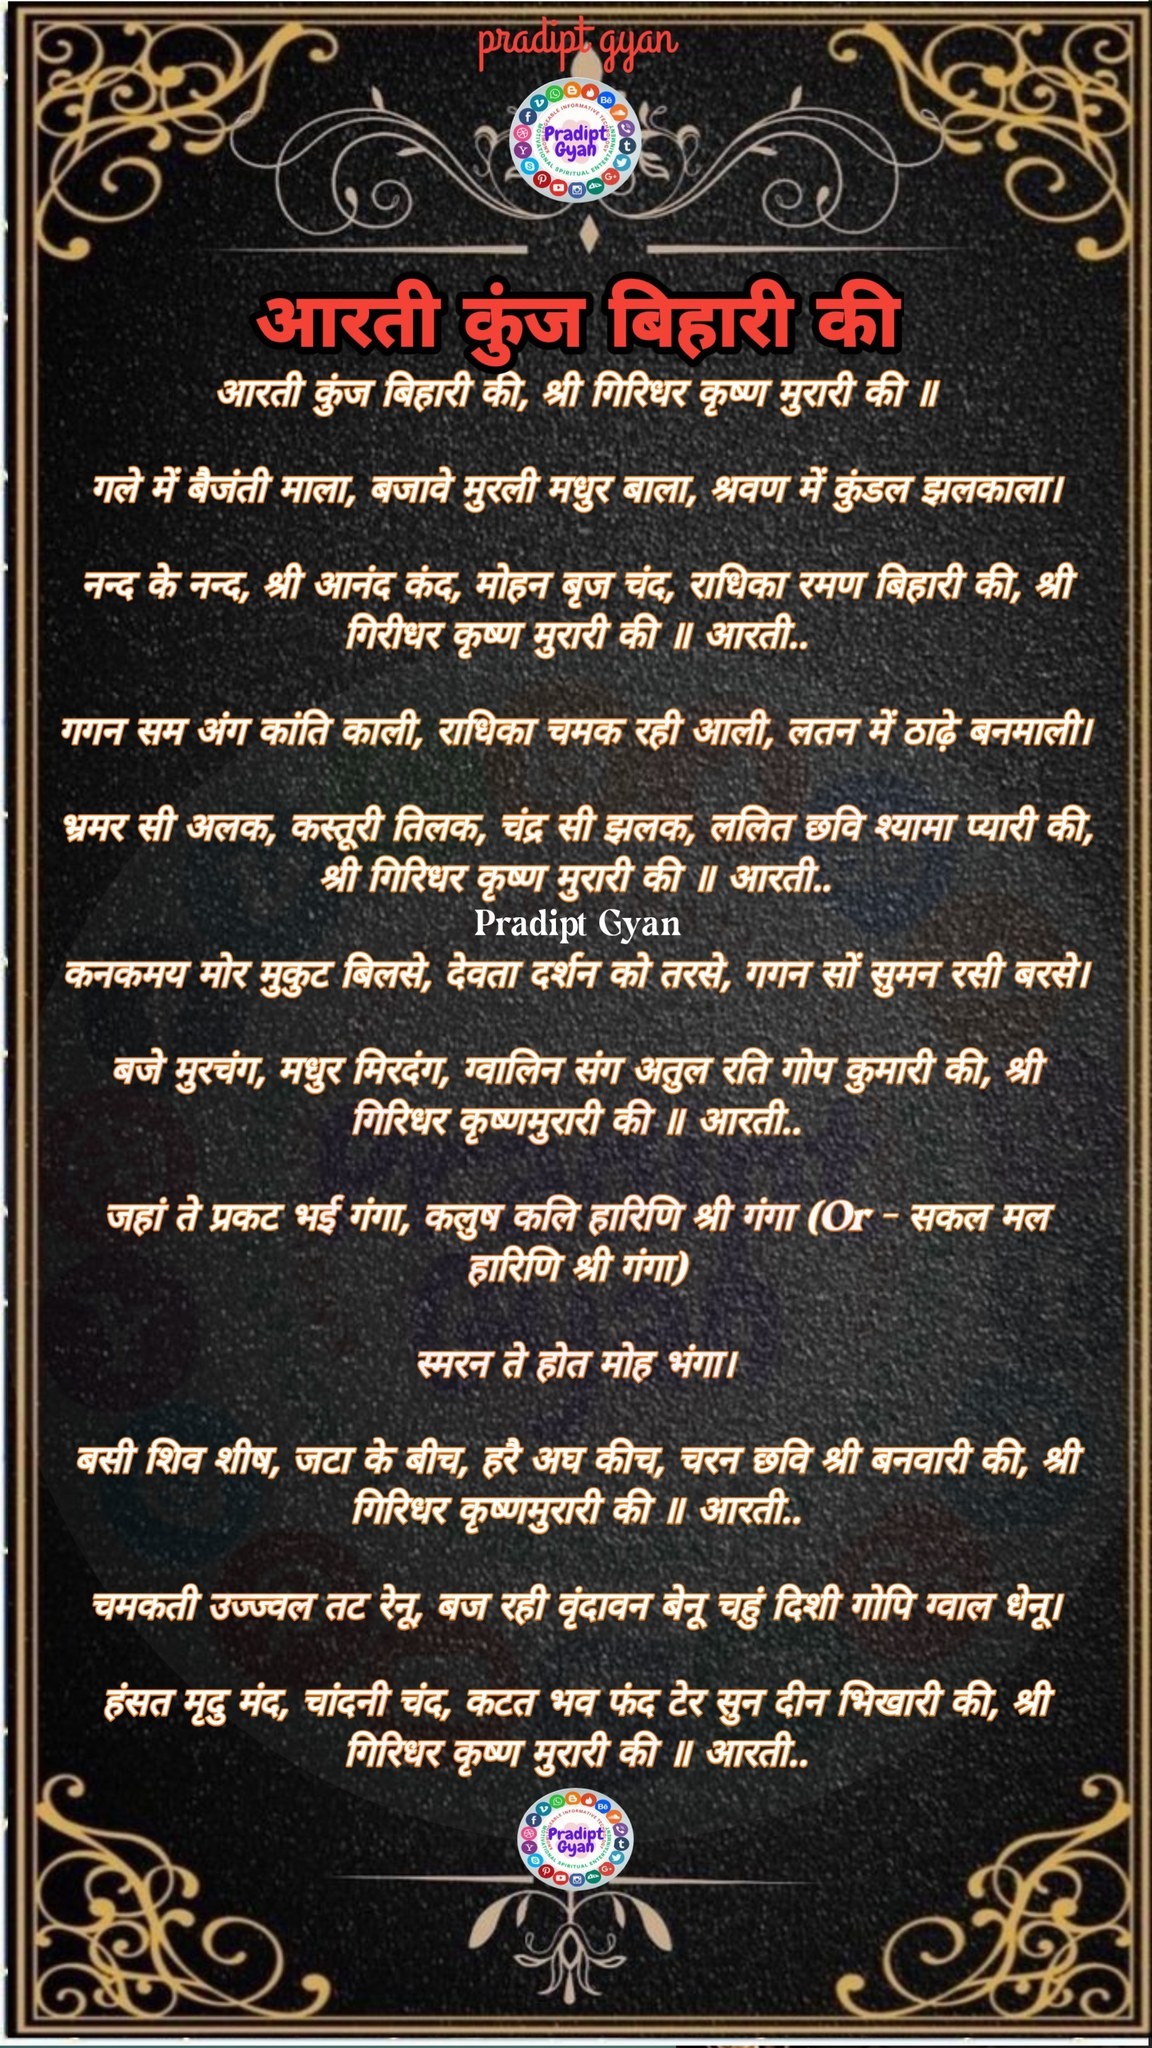 pradipt gyan
Pradipt
Gyan
आरती कुंज बिहारी की
आरती कुंज बिहारी की, श्री गिरिधर कृष्ण मुरारी की ॥
गले में बैजंती माला, बजावे मुरली मधुर बाला, श्रवण में कुंडल झलकाला।
नन्द के नन्द, श्री आनंद कंद, मोहन बृज चंद, राधिका रमण बिहारी की, श्री
गिरीधर कृष्ण मुरारी की ॥ आरती..
गगन सम अंग कांति काली, राधिका चमक रही आली, लतन में ठाढ़े बनमाली।
भ्रमर सी अलक, कस्तूरी तिलक, चंद्र सी झलक, ललित छवि श्यामा प्यारी की,
श्री गिरिधर कृष्ण मुरारी की ॥ आरती..
Pradipt Gyan
कनकमय मोर मुकुट बिलसे, देवता दर्शन को तरसे, गगन सों सुमन रसी बरसे।
बजे मुरचंग, मधुर मिरदंग, ग्वालिन संग अतुल रति गोप कुमारी की, श्री
गिरिधर कृष्णमुरारी की ॥ आरती..
जहां ते प्रकट भई गंगा, कलुष कलि हारिणि श्री गंगा (Or - सकल मल
हारिणि श्री गंगा)
स्मरन ते होत मोह भंगा।
बसी शिव शीष, जटा के बीच, हरै अघ कीच, चरन छवि श्री बनवारी की, श्री
गिरिधर कृष्णमुरारी की ॥ आरती..
चमकती उज्ज्वल तट रेनू, बज रही वृंदावन बेनू चहुं दिशी गोपि ग्वाल धेनू।
हंसत मृदु मंद, चांदनी चंद, कटत भव फंद टेर सुन दीन भिखारी की, श्री
गिरिधर कृष्ण मुरारी की ॥ आरती..
Pradipt
Gyan